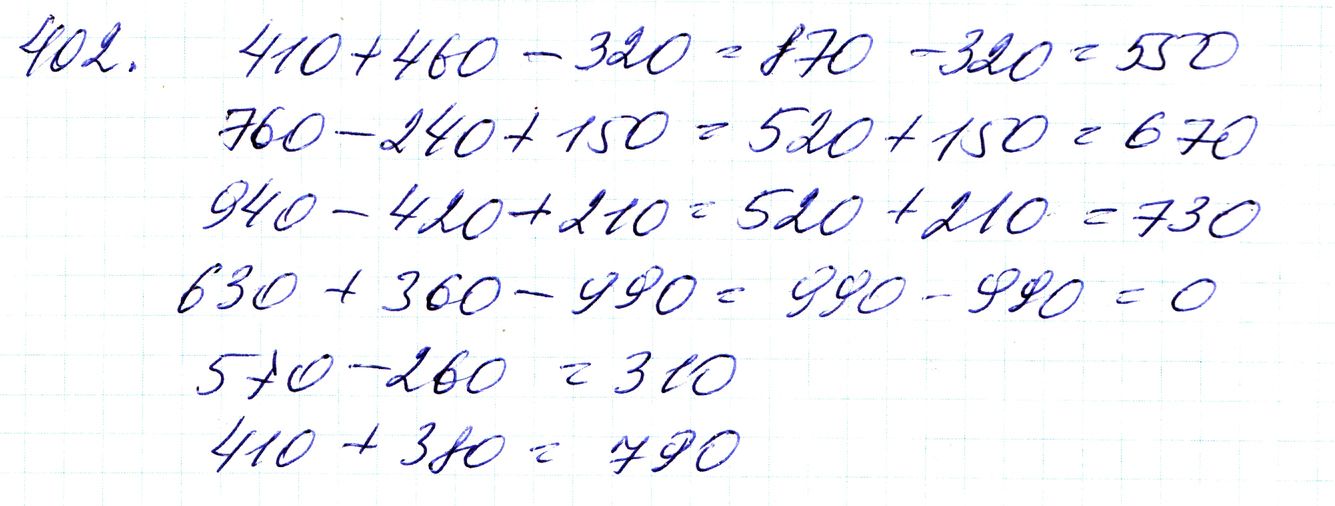 402. 410 + 460 - 320 = 870 - 320 = 550
760 - 240 + 150 = 520 + 150 = 670
940 - 420 + 210 = 520 + 210 = 730
630 + 360 - 990 = 990 - 990 = 0
570 - 260 = 310
410 + 380 = 790